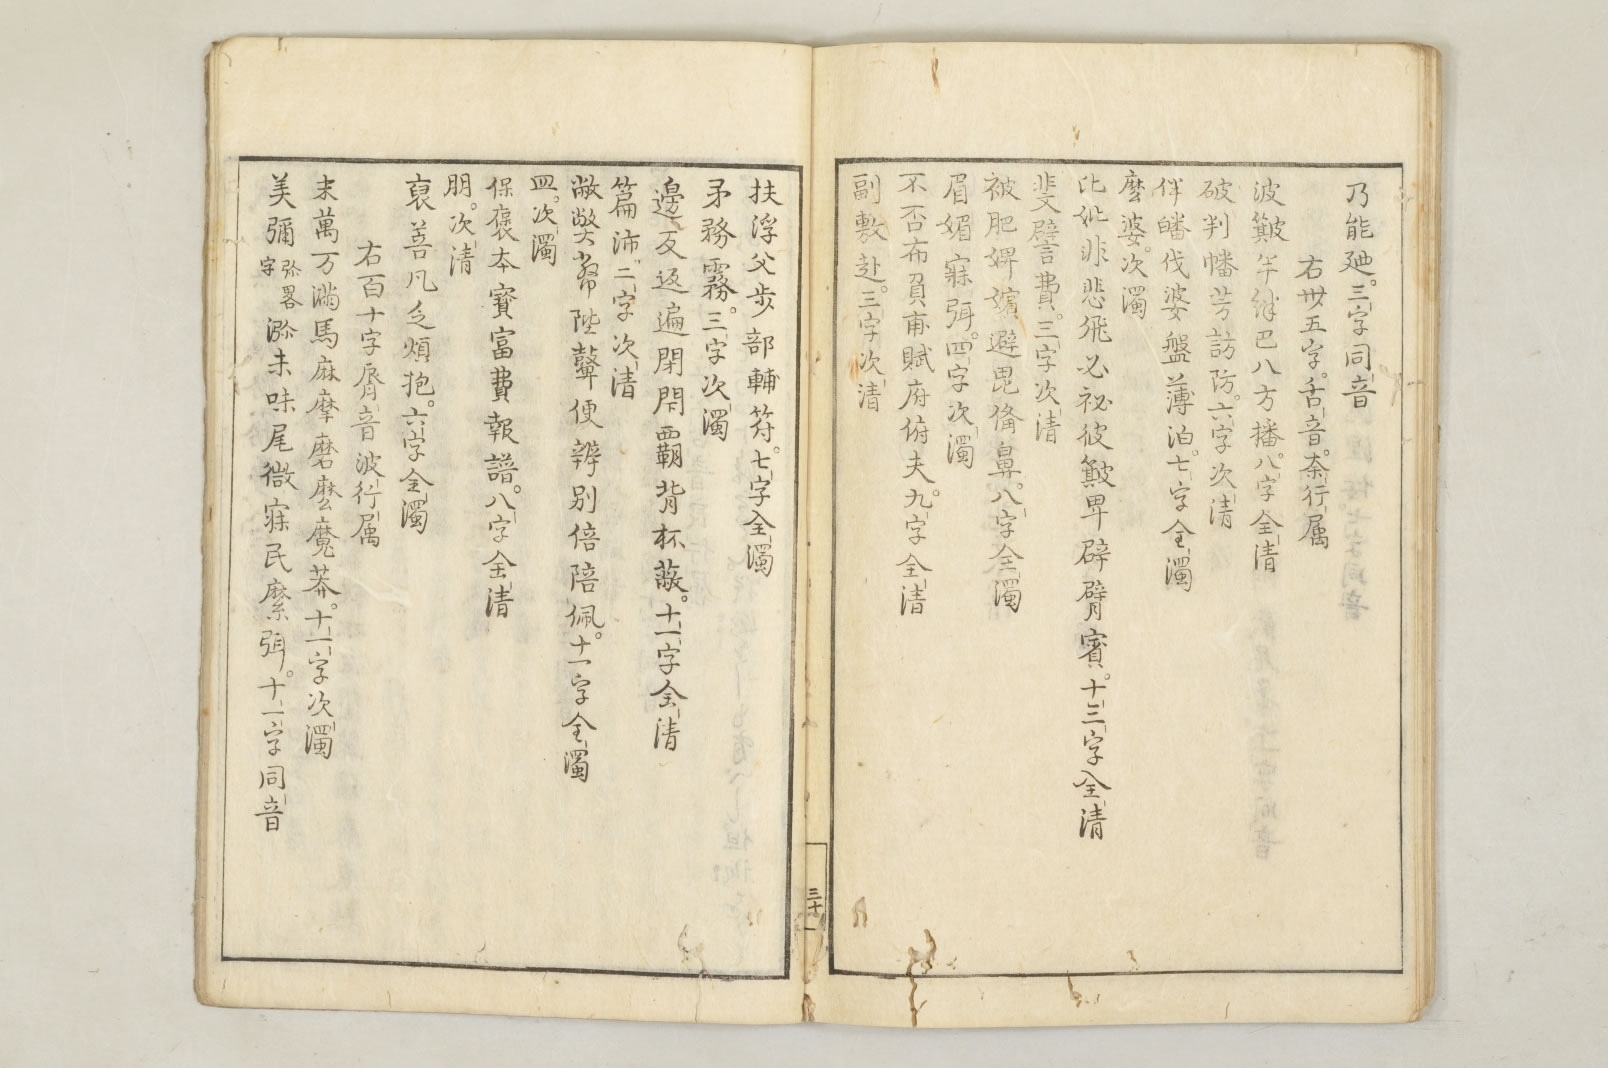 乃能廼。三字同音
右丗五字。舌音。奈行属
波簸半絆巴八方播。八字全清
破判幡芳訪防。六字次清
伴皤伐婆盤薄泊。七字全濁
麼婆。次濁
比妣非悲飛必祕彼簸卑辟臂賓。十三字全清
斐譬費。三字次清
被肥婢嬪避毘俻鼻。八字全濁
眉媚寐弭。四字次濁
不否布負甫賦府俯夫。九字全清
副敷赴。三字次清
扶浮父歩部輔符。七字全濁
矛務霧。三字次濁
邊反返遍閇閇覇背杯蔽。十一字全清
篇沛二字次清
敝獘幣陛鼙便辨別倍陪佩。十一字全濁
皿。次濁
保褒本寳富費報譜。八字全清
朋。次清
裒菩凡乏煩抱。六字全濁
右百十字脣音波行属
末萬万満馬麻摩磨麼魔莽。十一字次濁
美彌弥畧字渺未味尾微寐民縻弭。十一字同音
三十一